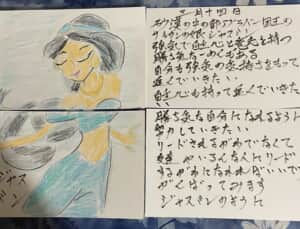 二月十四日
砂漠の中の都アグラバー国王の
サルタンの娘・ジャスミン
強気で自立心と意志を持つ
自分も強気の気持ちをもって
進んでいきたい
自立心も持って進んでいきたい
勝ち気な自分になれるように
努力していきたい
リードされるがわでなくて
いろんな人にリード
するがわになれればいいで
がんばっております
ジャスミンのように
ジャス